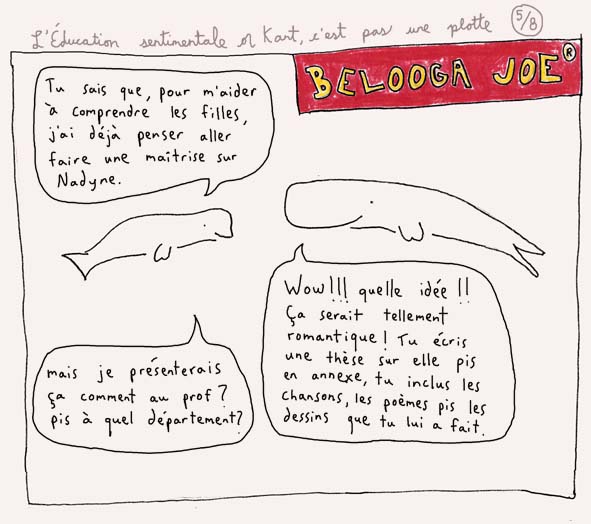 L'Éducation sentimentale of Kart, c'est pas une plotte 5/8
BELOOGA JOE ®
Tu sais que, pour m'aider
à comprendre les filles,
j'ai déjà penser aller
faire une maîtrise sur
Nadyne.
Wow!!! quelle idée!!
Ça serait tellement
romantique! Tu écris
une thèse sur elle pis
en annexe, tu inclus les
chansons, les poèmes pis les
dessins que tu lui a fait.
mais je présenterais
ça comment au prof?
pis à quel département?